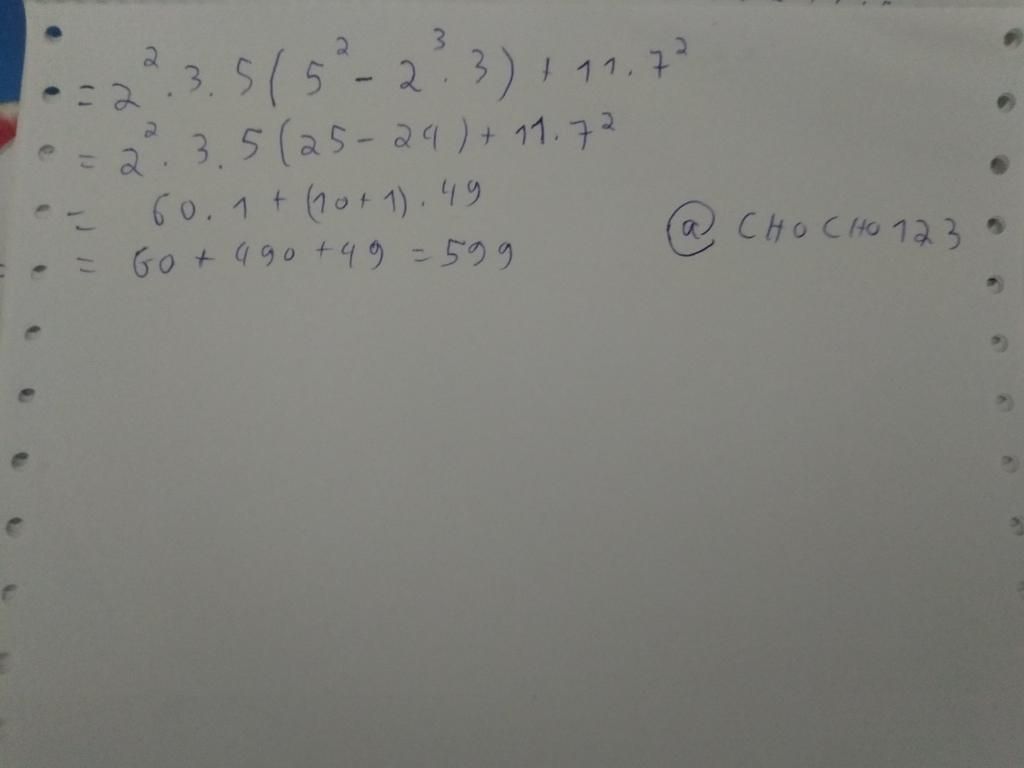 = 2² . 3 . 5 ( 5² - 2³ . 3 ) + 11 . 7²
= 2² . 3 . 5 ( 25 - 24 ) + 11 . 7²
= 60 . 1 + (10 + 1) . 49
= 60 + 490 + 49 = 599
@ CHOCHO123